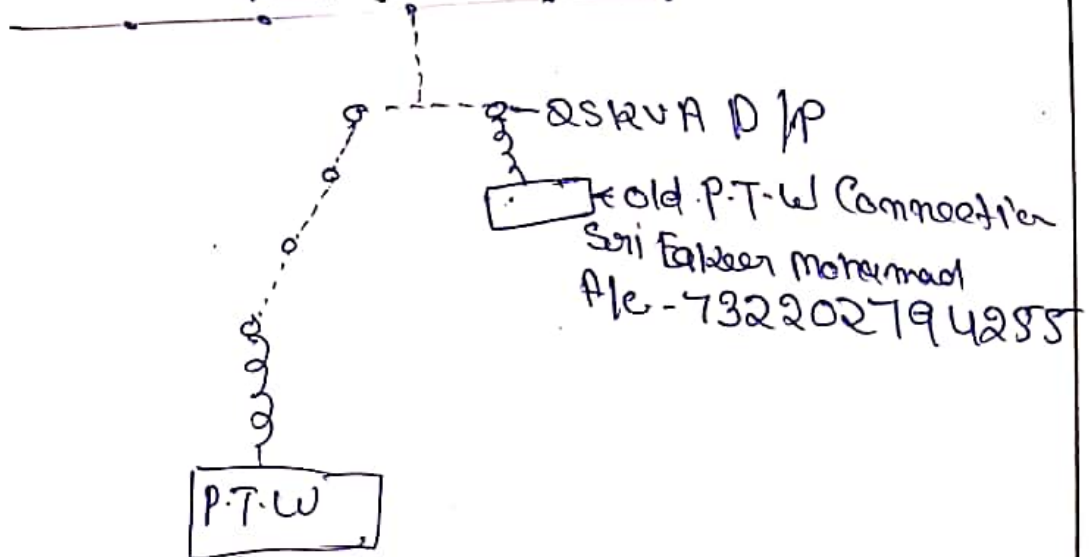 25KVA D/P
old P.T.W Connection
Sri Fakeer Mohammad
A/c - 732202794255
P.T.W